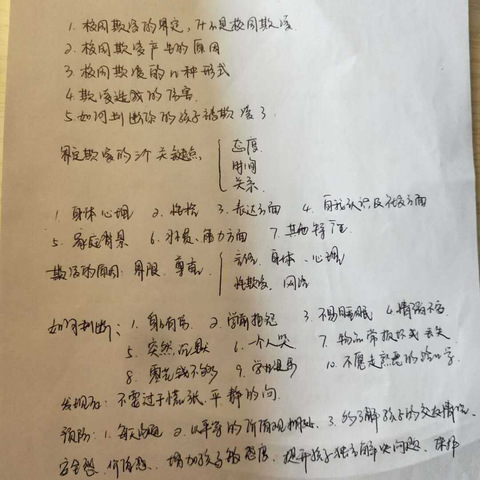 1. 校园欺凌的界定,什么是校园欺凌
2. 校园欺凌产生的原因
3 校园欺凌的几种形式
4. 欺凌造成的伤害
5 如何判出你的孩子被欺凌了
界定欺凌的3个关键点
态度
时间
关系
1. 身体心理 2. 性格 3. 表达方面 4. 自我认识及社会方面
5. 家庭背景 6. 外貌、能力方面 7. 其他特征
欺凌的原因: 界限、尊重
言语、身体、心理
性欺凌、网络
如何判断: 1. 身上有伤 2. 学习 3. 不易睡眠 4. 情绪不
5. 突然沉默 6. 一个人哭 7. 物品常损坏或丢失
8. 零花钱不够 9. 学校 10. 不愿走熟悉的路上学
发现后: 不需过于慌张、平静的问
预防: 1. 2. 3. 多了解孩子的交友情况
安全感、价值感、增加孩子的态度、提升孩子独立解决问题、